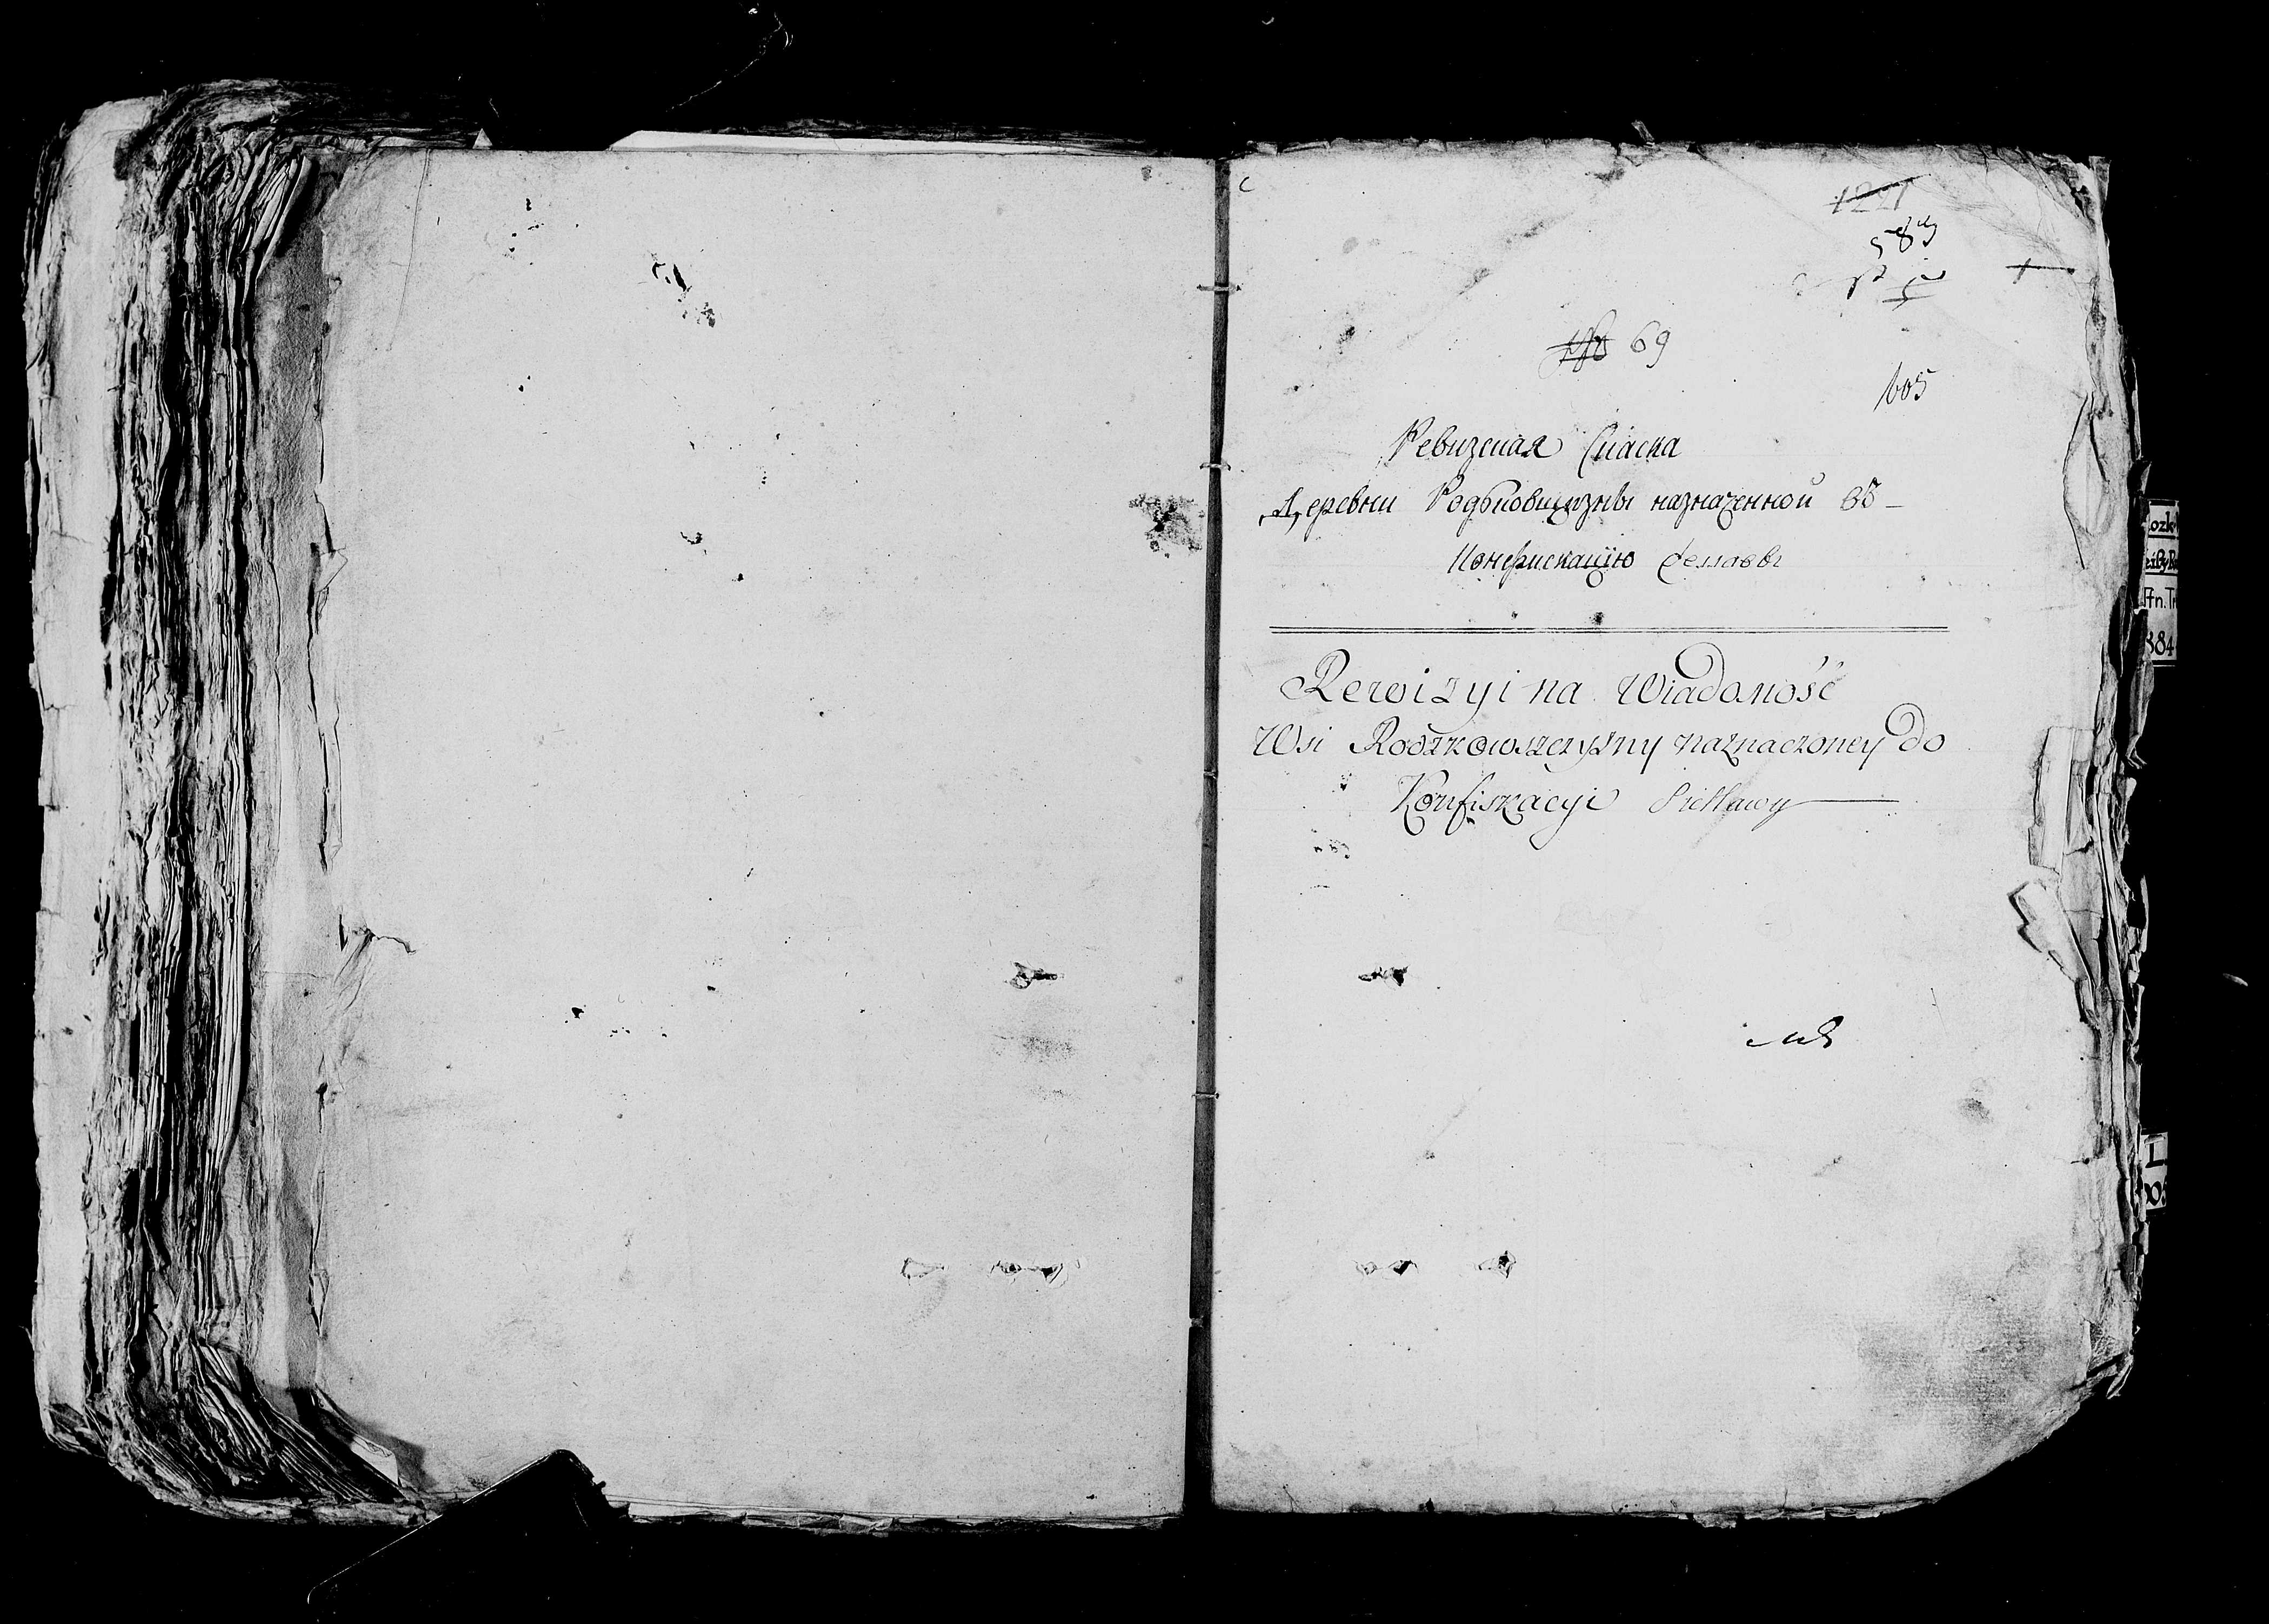 1221
583
69
605
Ревизская Скаска
Деревни Родзковщизны назначенной въ
Конфискацiю Селлавы
Rewizyi na Wiadomość
Wsi Rodzkowszczyzny naznaczoney do
Konfiskacyi Siellawy